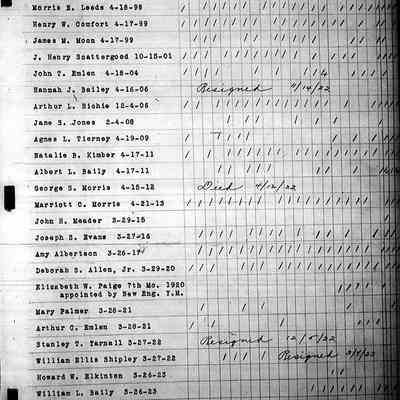 Morris E. Leeds 4-18-98
Henry W. Comfort 4-17-99
James M. Moon 4-17-99
J. Henry Scattergood 10-15-01
John T. Emlen 4-18-04
Hannah J. Bailey 4-16-06 Resigned 9/14/22
Arthur L. Richie 12-4-06
Jane S. Jones 2-4-08
Agnes L. Tierney 4-19-09
Natalie B. Kimber 4-17-11
Albert L. Baily 4-17-11
George S. Morris 4-15-12 Died 4/12/22
Marriott C. Morris 4-21-13
John H. Meader 3-29-15
Joseph E. Evans 3-27-16
Amy Albertson 3-26-17
Deborah S. Allen, Jr. 3-29-20
Elizabeth W. Paige 7th Mo. 1920
appointed by New Eng. Y.M.
Mary Palmer 3-28-21
Arthur C. Emlen 3-28-21
Stanley T. Yarnall 3-27-22 Resigned 12/5/22
William Ellis Shipley 3-27-22 Resigned
Howard W. Elkinton 3-26-23
William L. Baily 3-26-23